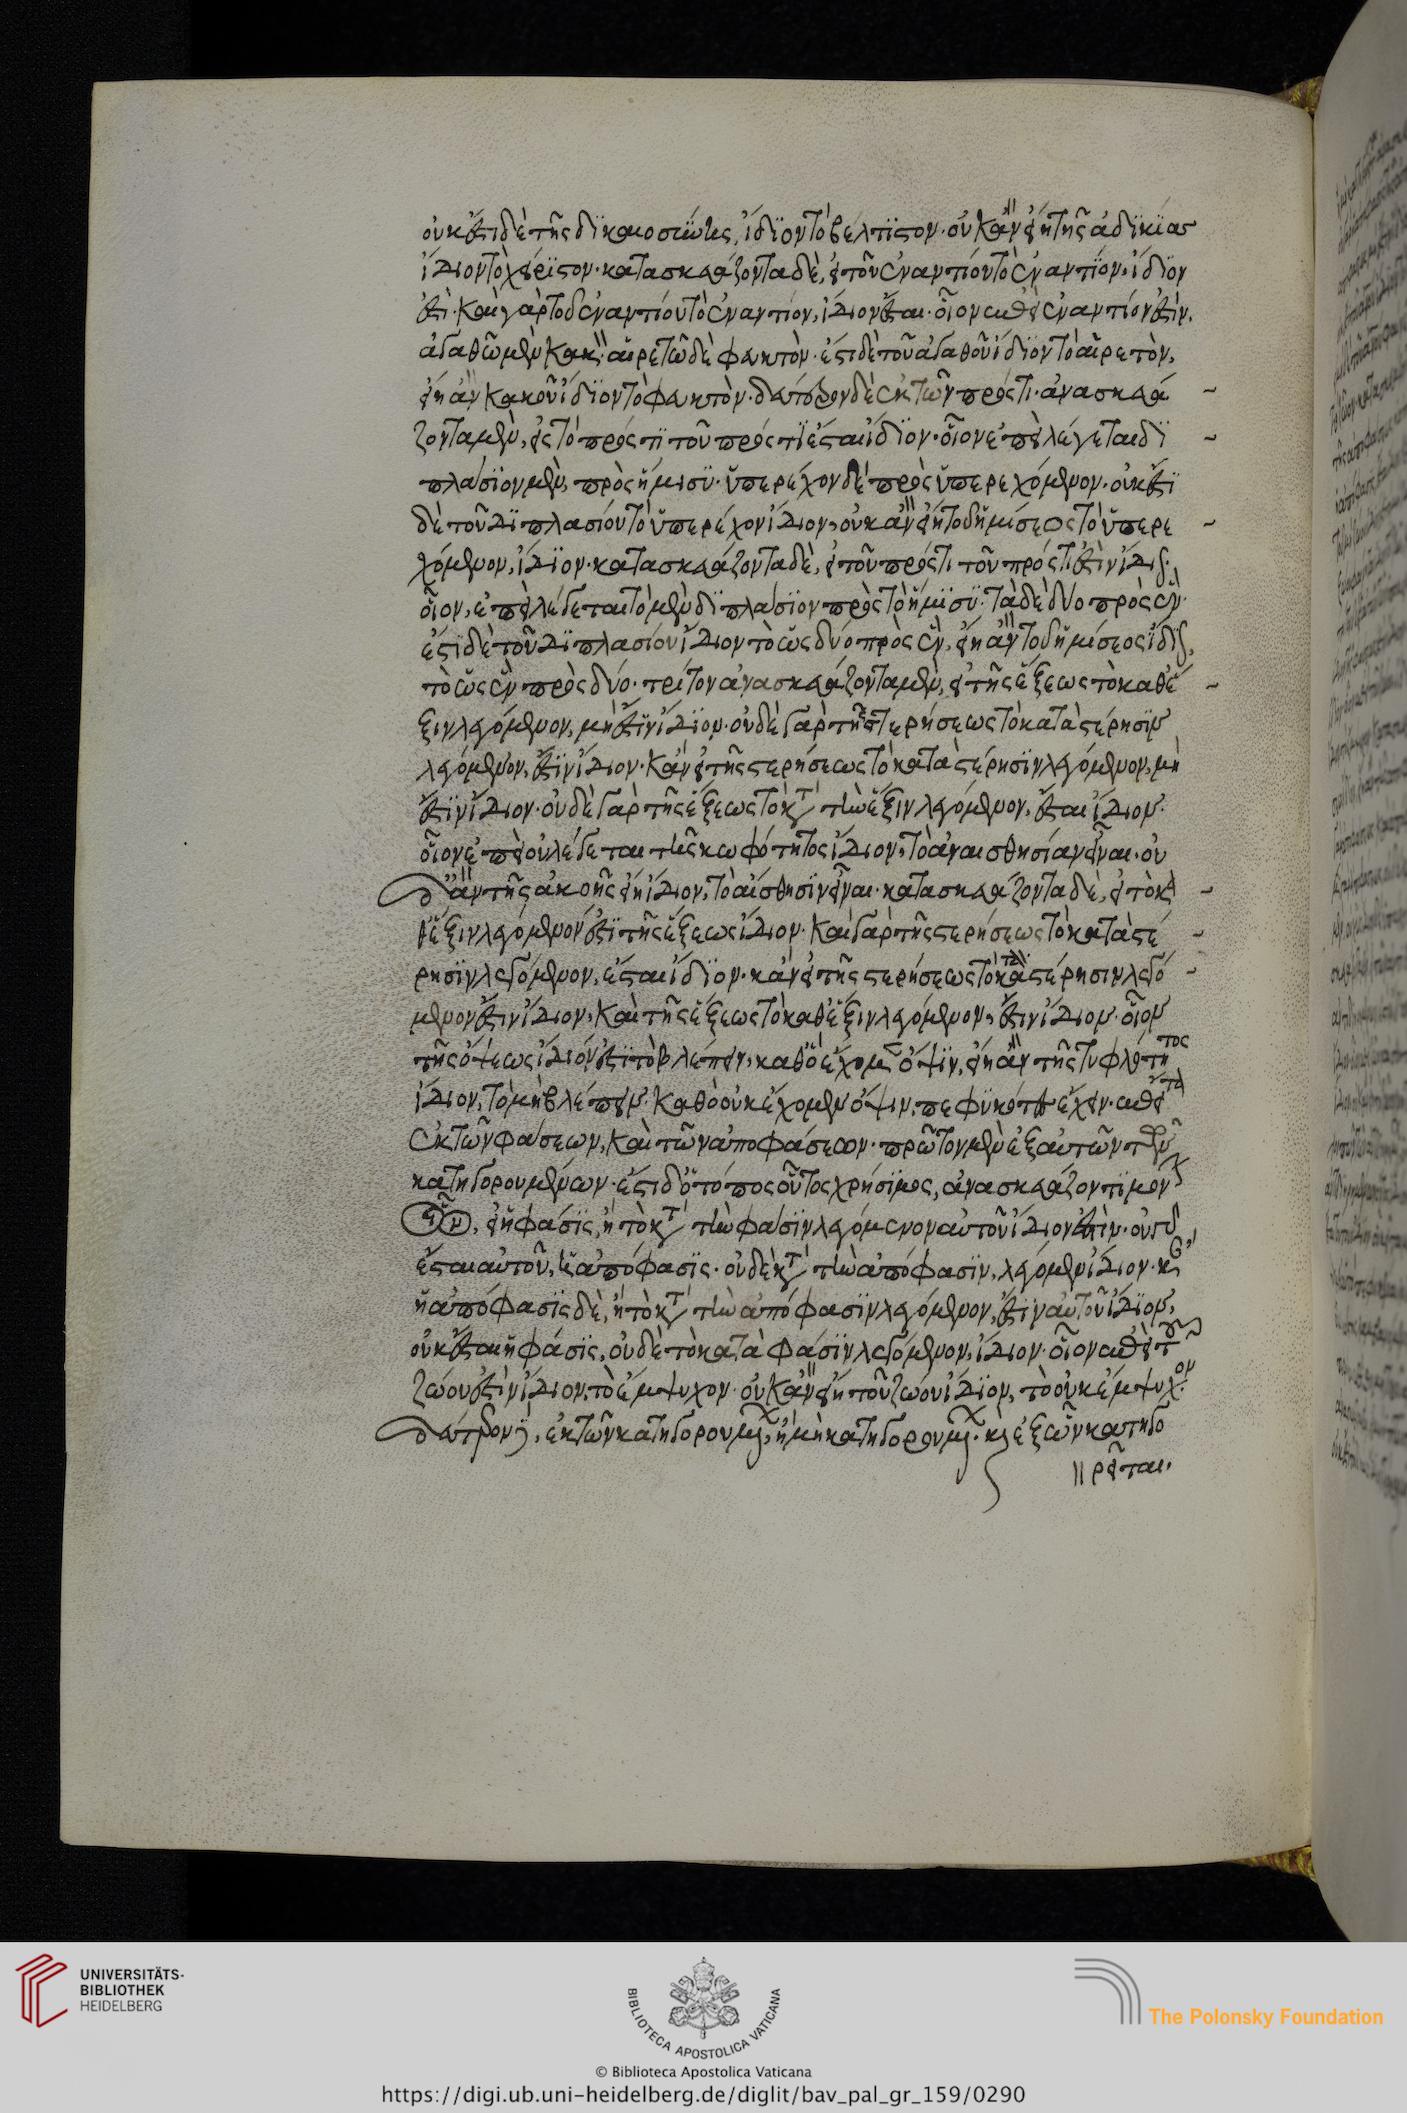 οὐκ ἔστι δὲ τῆς δικαιοσύνης, ἴδιον τὸ βέλτιστον· οὐκ ἂν εἴη τῆς ἀδικίας
ἴδιον τὸ χείριστον· κατασκευάζοντα δὲ, εἰ τοῦ ἐναντίου τὸ ἐναντίον, ἴδιόν
ἐστι· καὶ γὰρ τοῦ ἐναντίου τὸ ἐναντίον, ἴδιον ἔσται· οἷον ἐπεὶ ἐναντίον ἐστὶν,
ἀγαθῷ μὲν κακόν· αἱρετῷ δὲ φευκτὸν· ἔστι δὲ τοῦ ἀγαθοῦ ἴδιον τὸ αἱρετὸν,
εἴη ἂν κακοῦ ἴδιον τὸ φευκτὸν· δεύτερον δὲ ἐκ τῶν πρός τι· ἀνασκευά
ζοντα μὲν, εἰς τὸ πρός τι τοῦ πρός τι ἔσται ἴδιον· οἷον ἐπεὶ λέγεται δι
πλάσιον μὲν, πρὸς ἥμισυ· ὑπερέχον δὲ πρὸς ὑπερεχόμενον· οὐκ ἔστι
δὲ τοῦ διπλασίου τὸ ὑπερέχον ἴδιον, οὐκ ἂν εἴη τοῦ ἡμίσεος τὸ ὑπερε
χόμενον, ἴδιον· κατασκευάζοντα δὲ, εἰ τοῦ πρός τι τοῦ πρός τι ἐστὶν ἴδιον·
οἷον, ἐπεὶ λέγεται τὸ μὲν διπλάσιον πρὸς τὸ ἥμισυ· τὰ δὲ δύο πρὸς ἓν·
ἔστι δὲ τοῦ διπλασίου ἴδιον τὸ ὡς δύο πρὸς ἓν, εἴη ἂν τοῦ ἡμίσεος ἴδιον,
τὸ ὡς ἓν πρὸς δύο· τρίτον ἀνασκευάζοντα μὲν, εἰ τῆς ἕξεως τὸ καθ' ἕ
ξιν λεγόμενον, μὴ ἔστιν ἴδιον· οὐδὲ γὰρ τῆς στερήσεως τὸ κατὰ στέρησιν
λεγόμενον, ἔστιν ἴδιον· κἂν εἰ τῆς στερήσεως τὸ κατὰ στέρησιν λεγόμενον, μὴ
ἔστιν ἴδιον· οὐδὲ γὰρ τῆς ἕξεως τὸ κατὰ τὴν ἕξιν λεγόμενον, ἔσται ἴδιον·
οἷον ἐπεὶ οὐ λέγεται τῆς κωφότητος ἴδιον, τὸ ἀναισθησίαν εἶναι· οὐ
δ' ἂν τῆς ἀκοῆς εἴη ἴδιον, τὸ αἴσθησιν εἶναι· κατασκευάζοντα δὲ, εἰ τὸ κα
θ' ἕξιν λεγόμενόν ἐστι τῆς ἕξεως ἴδιον· καὶ γὰρ τῆς στερήσεως τὸ κατὰ στέ
ρησιν λεγόμενον, ἔσται ἴδιον· κἂν εἰ τῆς στερήσεως τὸ κατὰ στέρησιν λεγό
μενον ἔστιν ἴδιον, καὶ τῆς ἕξεως τὸ καθ' ἕξιν λεγόμενον, ἔστιν ἴδιον· οἷον
τῆς ὄψεως ἴδιόν ἐστι τὸ βλέπειν, καθὸ ἔχομεν ὄψιν, εἴη ἂν τῆς τυφλότητος
ἴδιον, τὸ μὴ βλέπειν· καθὸ οὐκ ἔχομεν ὄψιν, πεφυκότες ἔχειν· ἔπειτα
ἐκ τῶν φάσεων, καὶ τῶν ἀποφάσεων· πρῶτον μὲν ἐξ αὐτῶν τῶν
κατηγορουμένων· ἔστι δ' ὁ τόπος οὗτος χρήσιμος, ἀνασκευάζοντι μόνον
οἷον, εἰ ἡ φάσις, ἢ τὸ κατὰ τὴν φάσιν λεγόμενον αὐτοῦ ἴδιον ἐστίν· οὐ γὰρ
ἔσται αὐτοῦ, ἡ ἀπόφασις· οὐδὲ κατὰ τὴν ἀπόφασιν, λεγόμενον ἴδιον· καὶ
ἡ ἀπόφασις δὲ, ἢ τὸ κατὰ τὴν ἀπόφασιν λεγόμενον, ἔστιν αὐτοῦ ἴδιον,
οὐκ ἔσται ἡ φάσις, οὐδὲ τὸ κατὰ φάσιν λεγόμενον, ἴδιον· οἷον ἐπεὶ τοῦ
ζῴου ἐστὶν ἴδιον, τὸ ἔμψυχον· οὐκ ἂν εἴη τοῦ ζῴου ἴδιον, τὸ οὐκ ἔμψυχον·
δεύτερον, ἐκ τῶν κατηγορουμένων, ἢ μὴ κατηγορουμένων· καὶ ἐξ ὧν κατηγο
ρεῖται.
UNIVERSITÄTS-
BIBLIOTHEK
HEIDELBERG
BIBLIOTECA APOSTOLICA VATICANA
The Polonsky Foundation
© Biblioteca Apostolica Vaticana
https://digi.ub.uni-heidelberg.de/diglit/bav_pal_gr_159/0290